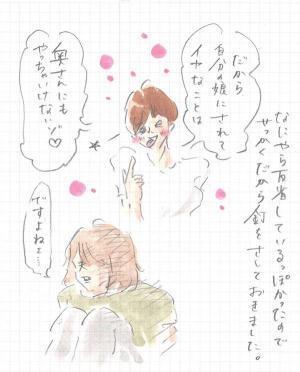 なにやら反省しているっぽかったので
せっかくだから釘をさしておきました。
だから
自分の娘にされて
イヤなことは
奥さんにも
やっちゃいけないゾ♡
ですよねぇ…